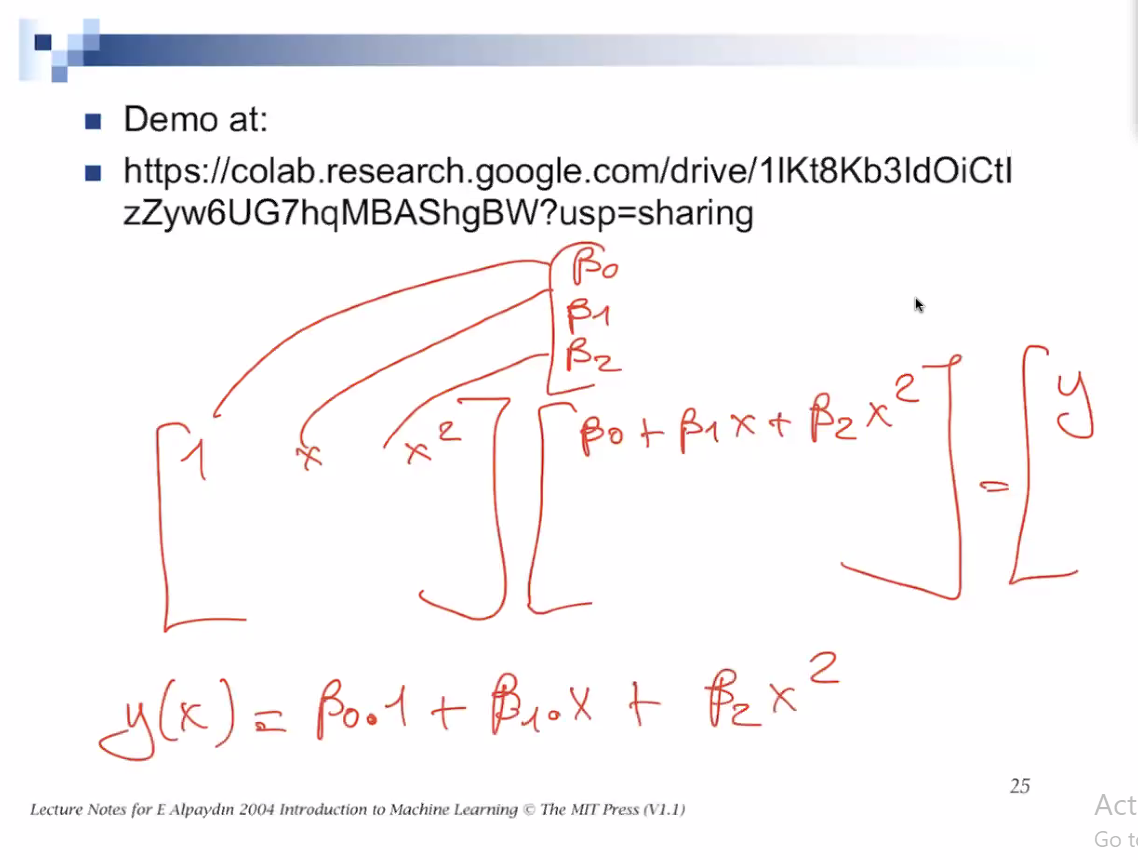 Demo at:
https://colab.research.google.com/drive/1lKt8Kb3ldOiCtI
zZyw6UG7hqMBAShgBW?usp=sharing
β0
β1
β2
1 x x²
β0 + β1 x + β2 x²
= y
y(x) = β0.1 + β1.x + β2 x²
25
Lecture Notes for E Alpaydın 2004 Introduction to Machine Learning © The MIT Press (V1.1)
Act
Go to